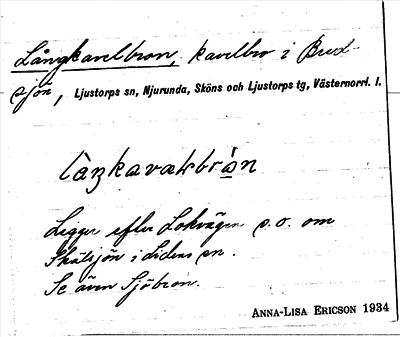 Långkavelbron, kavelbro i Bred-
sjön, Ljustorps sn, Njurunda, Sköns och Ljustorps tg, Västernorrl. l.
làŋkavalsbrò̲n
Ligger efter Lokvägen s.o. om
Skålsjön i Lidens sn.
Se även Sjöbron.
ANNA-LISA ERICSON 1934